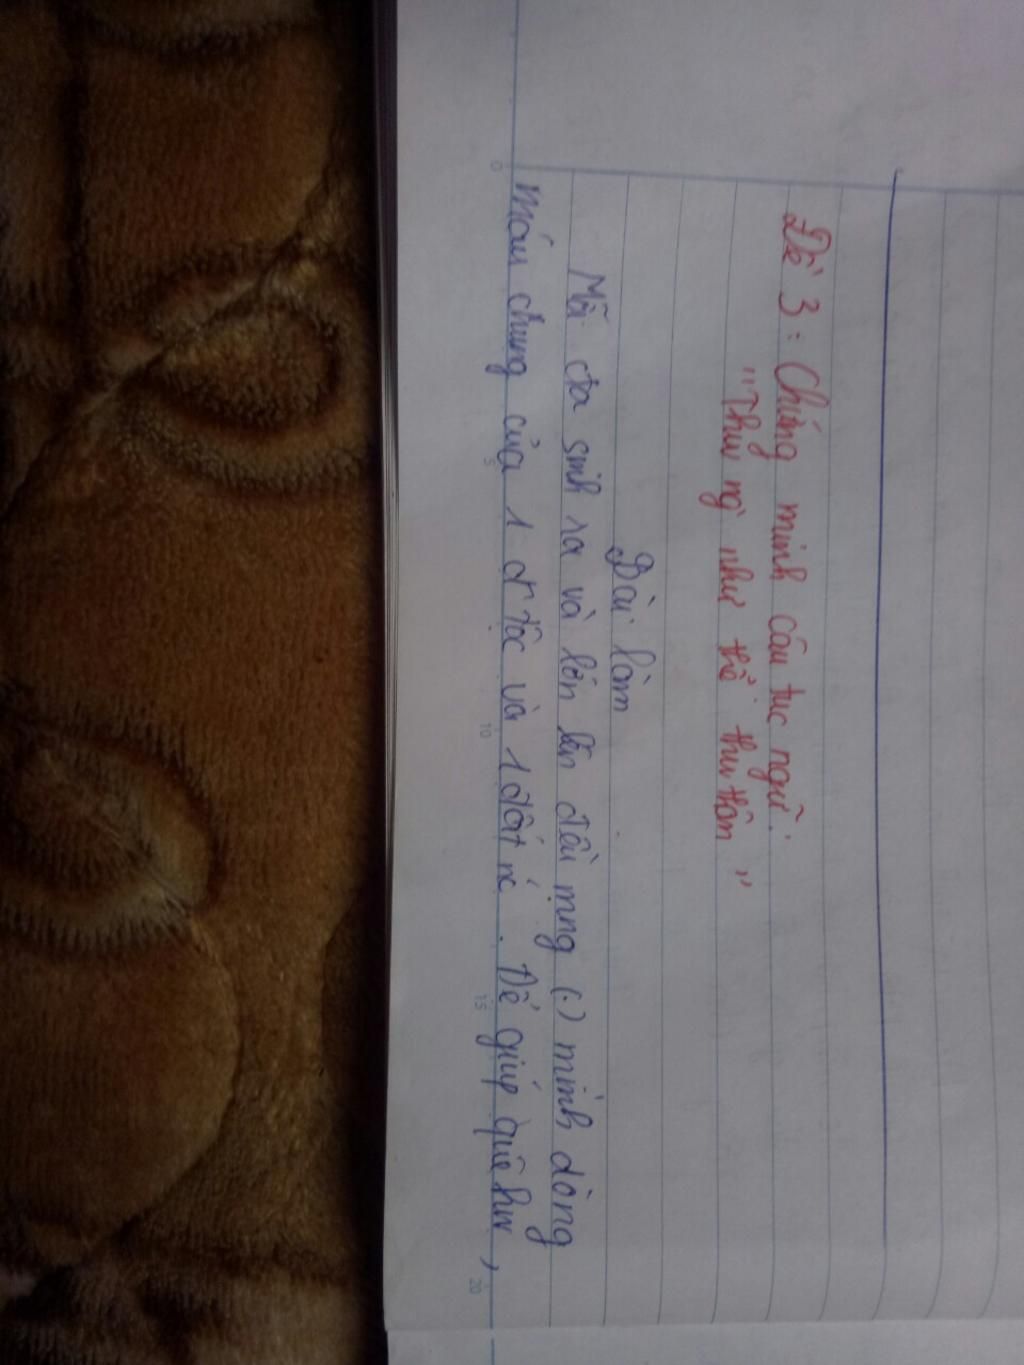 Đề 3: Chứng minh câu tục ngữ:
"Thw ng` như thể thw thân"
Bài làm
Mỗi cta sinh ra và lớn lên đều mng (.) mình dòng
máu chung của 1 d tộc và 1 đất nc. Để giúp quê hw,
0
5
10
15
20